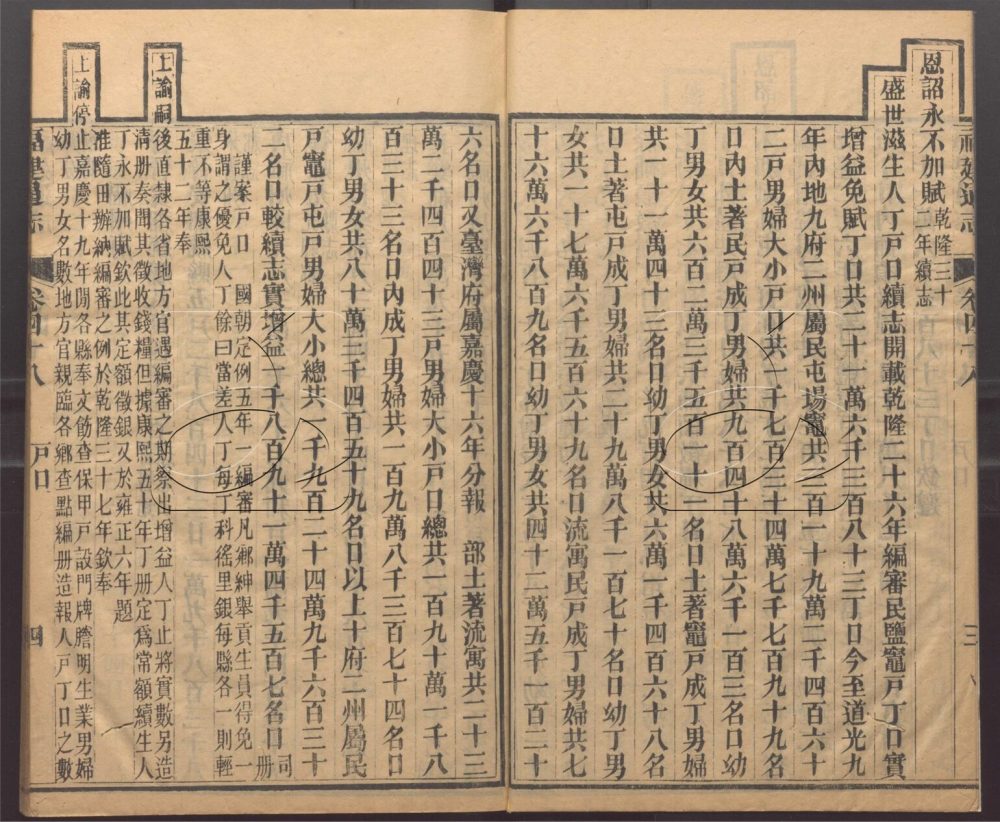 福建通志 卷四十八
恩詔永不加賦乾隆三十二年續志
盛世滋生人丁戶口續志開載乾隆二十六年編審民鹽竈戶丁口實
增益免賦丁口共二十一萬六千三百八十三丁口今至道光九
年內地九府二州屬民屯場竈共三百一十九萬二千四百六十
二戶男婦大小戶口共一千七百三十四萬七千七百九十九名
口內土著民戶成丁男婦共九百四十八萬六千一百三名口幼
丁男女共六百二萬三千五百一十一名口土著竈戶成丁男婦
共一十一萬四十三名口幼丁男女共六萬一千四百六十八名
口土著屯戶成丁男婦共二十九萬八千一百七十名口幼丁男
女共一十七萬六千五百六十九名口流寓民戶成丁男婦共七
十六萬六千八百九名口幼丁男女共四十二萬五千一百二十
六名口又臺灣府屬嘉慶十六年分報 部土著流寓共二十三
萬二千四百四十三戶男婦大小戶口總共一百九十萬一千八
百三十三名口內成丁男婦共一百九萬八千三百七十四名口
幼丁男女共八十萬三千四百五十九名口以上十府二州屬民
戶竈戶屯戶男婦大小總共一千九百二十四萬九千六百三十
二名口較續志實增益一千八百九十一萬四千五百七名口司冊
謹案戶口 國朝定例五年一編審凡鄉紳舉貢生員得免一
身謂之優免人丁餘曰當差人丁每丁科徭里銀每縣各一則輕
重不等康熙
五十二年奉
上諭嗣後直隸各省地方官遇編審之期察出增益人丁止將實數另造
清册奏聞其徵收錢糧但據康熙五十年丁册定為常額續生人
丁永不加賦欽此其定額徵銀又於雍正六年題
准隨田辦納編審之例於乾隆三十七年欽奉
上諭停止嘉慶十九年閒各縣奉文飭查保甲戶設門牌謄明生業男婦
幼丁男女名數地方官親臨各鄉查點編册造報人戶丁口之數
福建通志 卷四十八 戶口 四